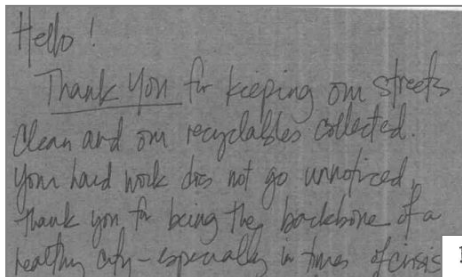 Hello!
Thank You for keeping our streets
clean and our recyclables collected.
Your hard work does not go unnoticed.
Thank you for being the backbone of a
healthy city - especially in times of crisis
1